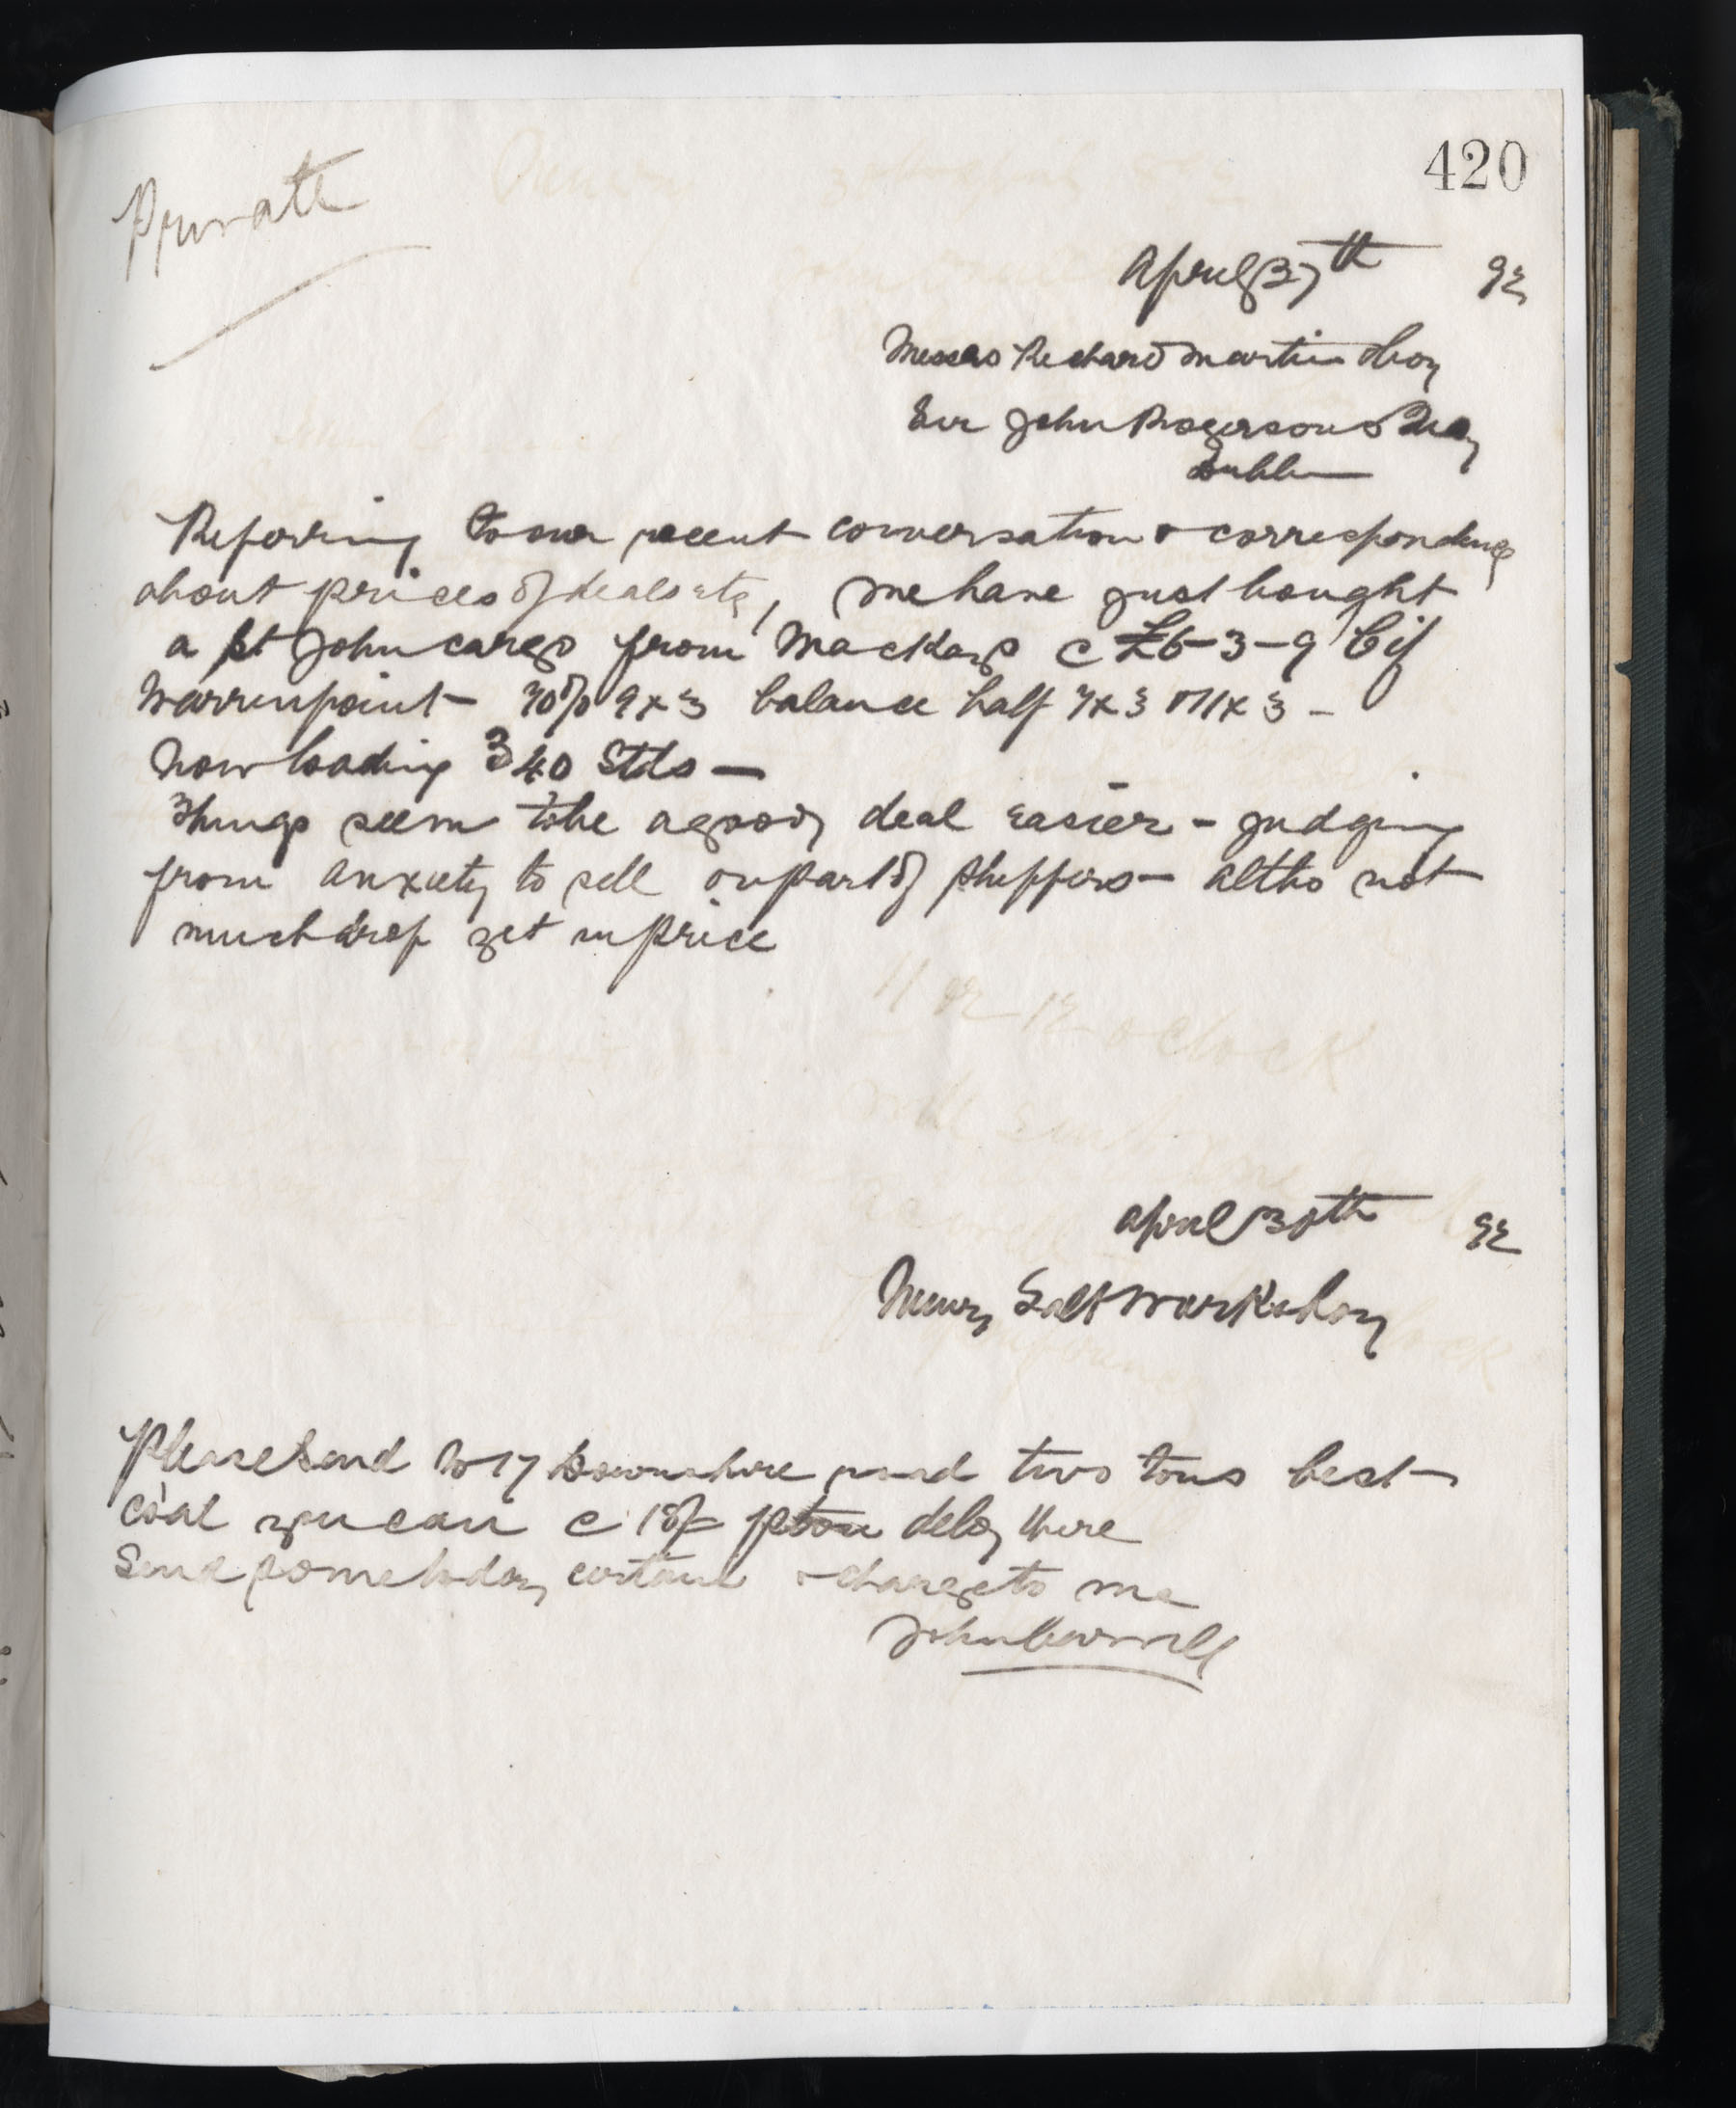 420
Private
April 27th 92
Messrs Richard Martin & Coy
Sir John Rogersons Quay
Dublin
Referring to our recent conversation & correspondence
about prices of deals etc, we have just bought
a St John cargo from Mackays @ £6-3-9 Cif
Warrenpoint 70% 9x3 balance half 7x3 & 11x3 -
Now loading 340 Stds —
Things seem to be a good deal easier - judging
from anxiety to sell on part of shippers - altho not
much drop yet in price
April 30th 92
Newry Salt Works Coy
Please send to 17 Downshire road two tons best
coal you can @ 18/- p ton dely there
Send somebody & charge to me